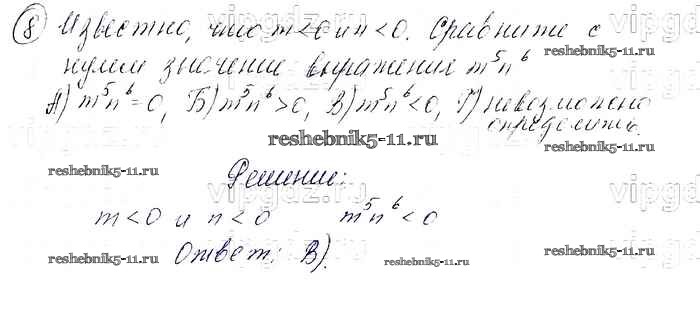 ⑧ Известно, что m<0 и n<0. Сравните с
нулем значение выражения m⁵n⁶
А) m⁵n⁶=0, Б) m⁵n⁶>0, В) m⁵n⁶<0, Г) невозможно
определить.
reshebnik5-11.ru
reshebnik5-11.ru
reshebnik5-11.ru
reshebnik5-11.ru
Решение:
m<0 и n<0 m⁵n⁶<0
Ответ: В).
reshebnik5-11.ru
reshebnik5-11.ru
reshebnik5-11.ru
vipgdz
vipgdz
vipgdz